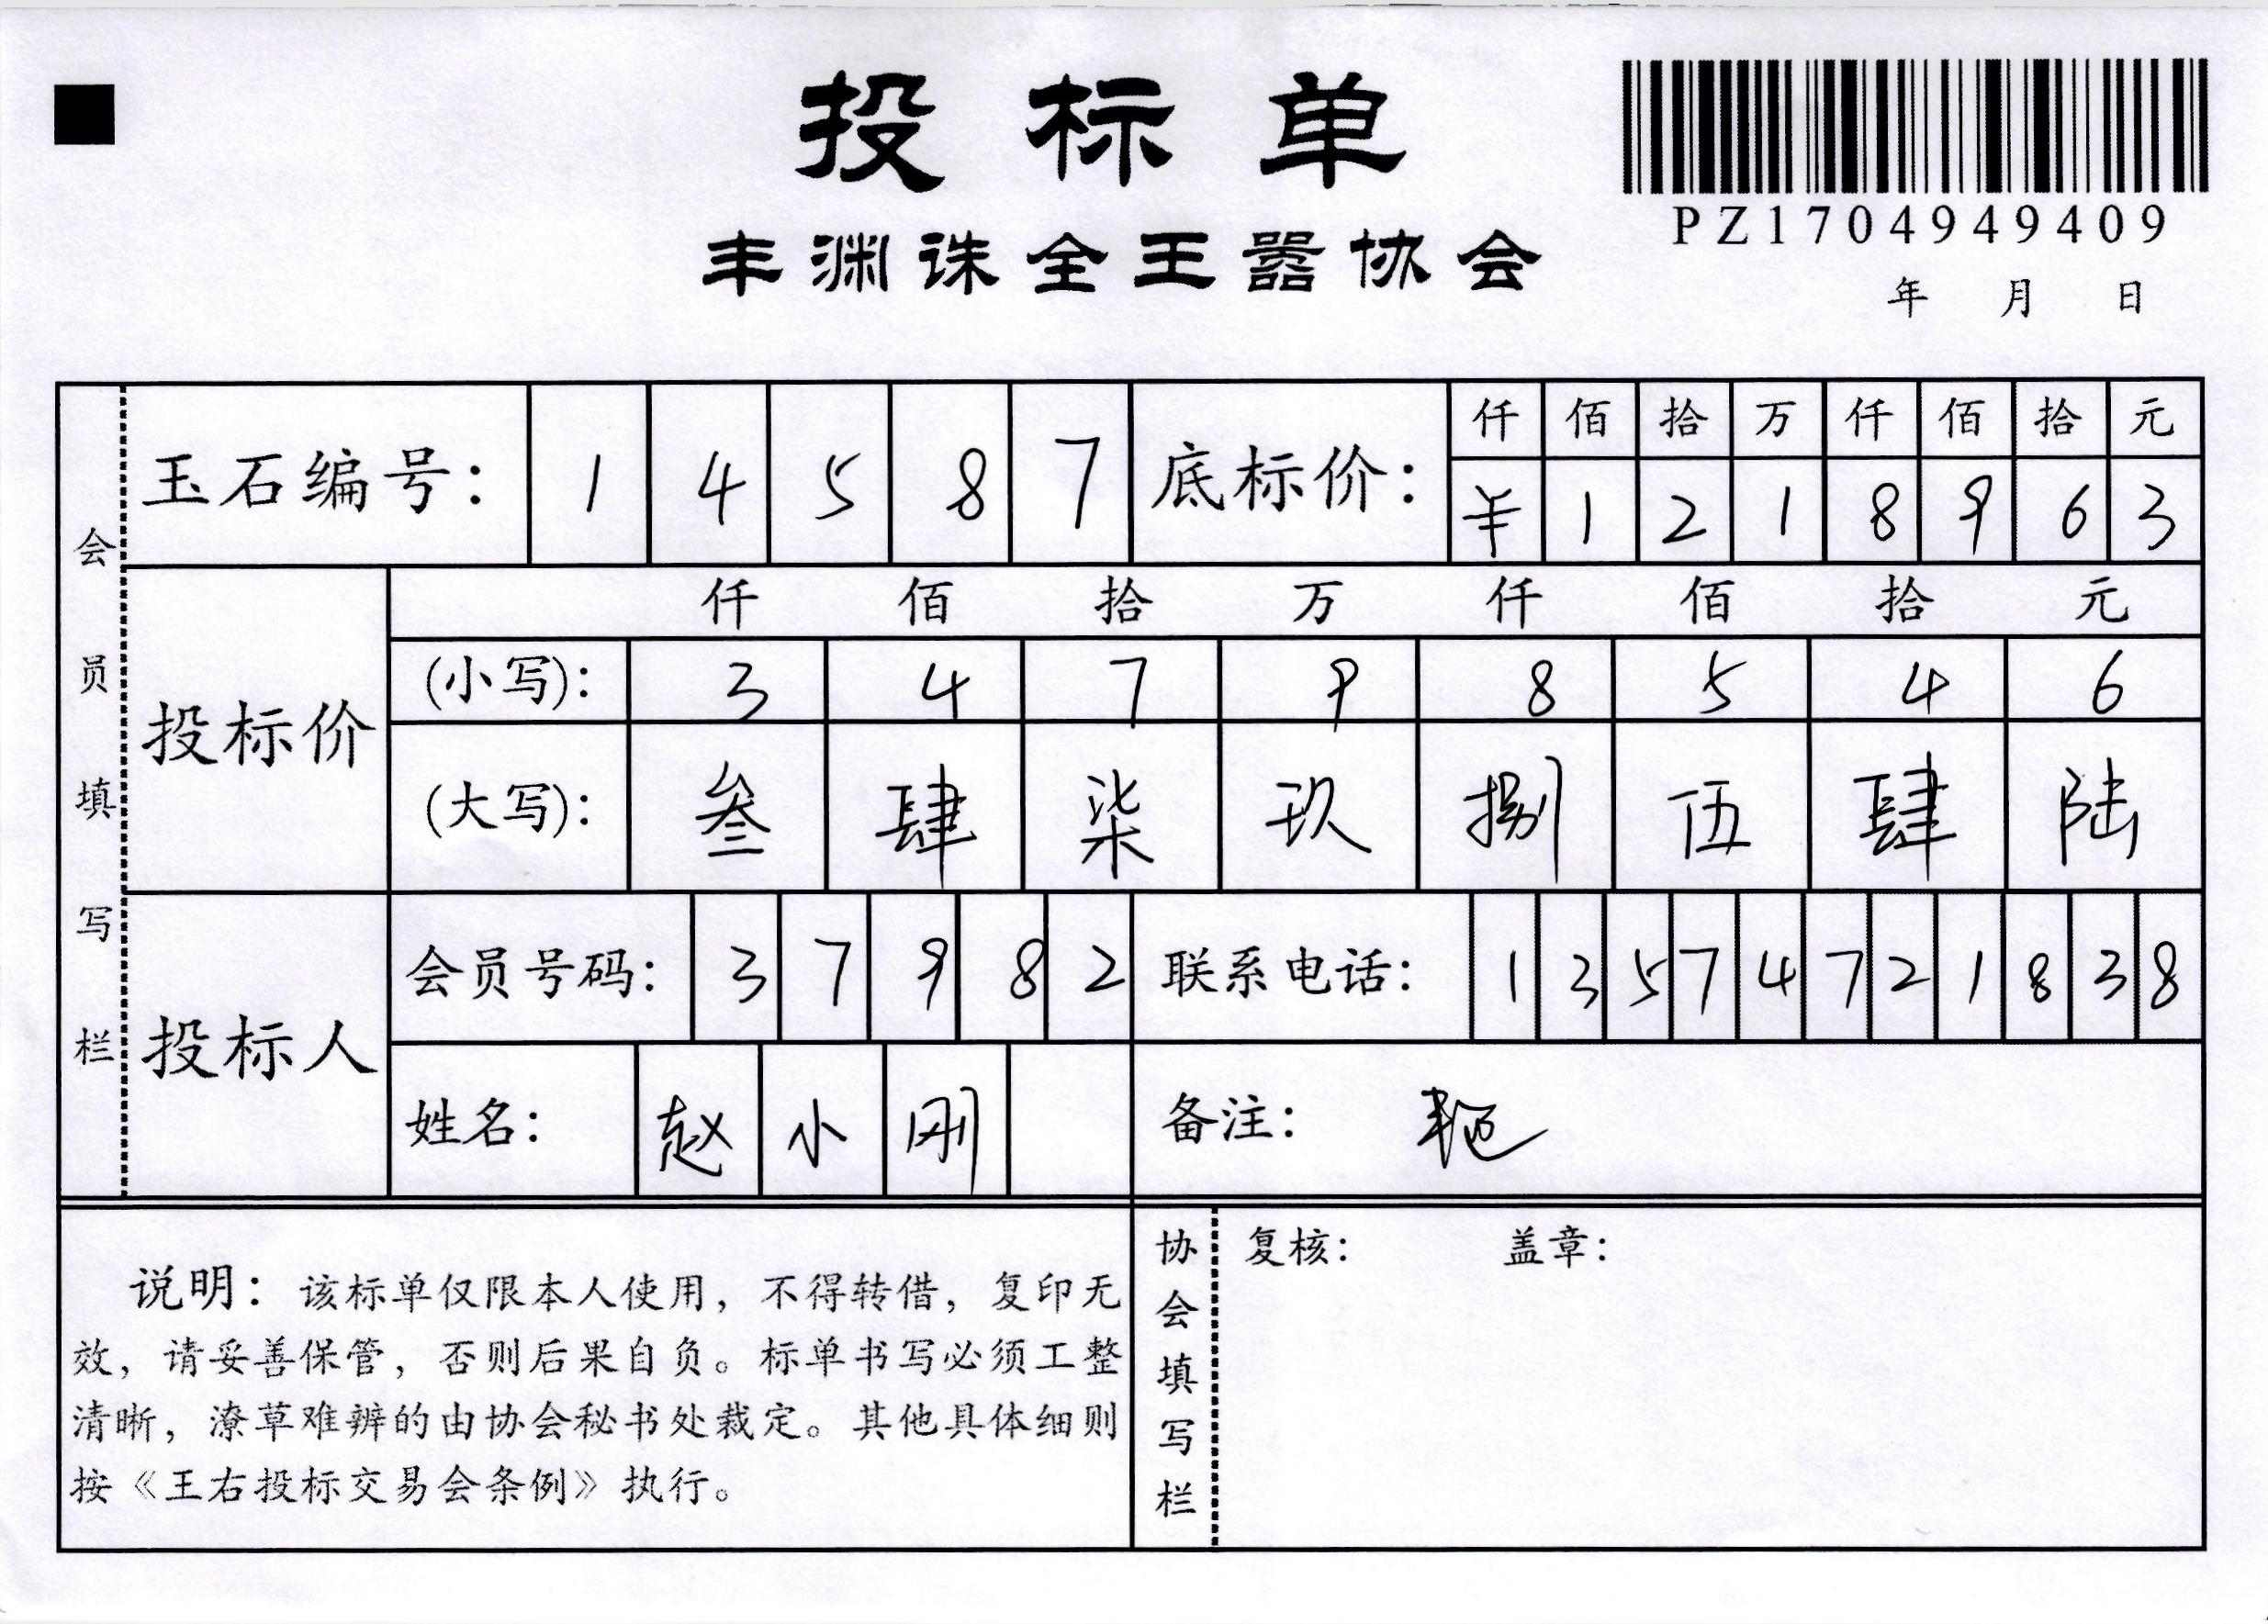 投标单
PZ1704949409
丰渊诛全王嚣协会
年 月 日
会员填写栏
玉石编号: 1 4 5 8 7
底标价: 仟 佰 拾 万 仟 佰 拾 元
¥ 1 2 1 8 9 6 3
投标价
仟 佰 拾 万 仟 佰 拾 元
(小写): 3 4 7 9 8 5 4 6
(大写): 叁 肆 柒 玖 捌 伍 肆 陆
投标人
会员号码: 3 7 9 8 2
联系电话: 1 3 5 7 4 7 2 1 8 3 8
姓名: 赵 小 刚
备注:
说明：该标单仅限本人使用，不得转借，复印无
效，请妥善保管，否则后果自负。标单书写必须工整
清晰，潦草难辨的由协会秘书处裁定。其他具体细则
按《王右投标交易会条例》执行。
协会填写栏
复核: 盖章: